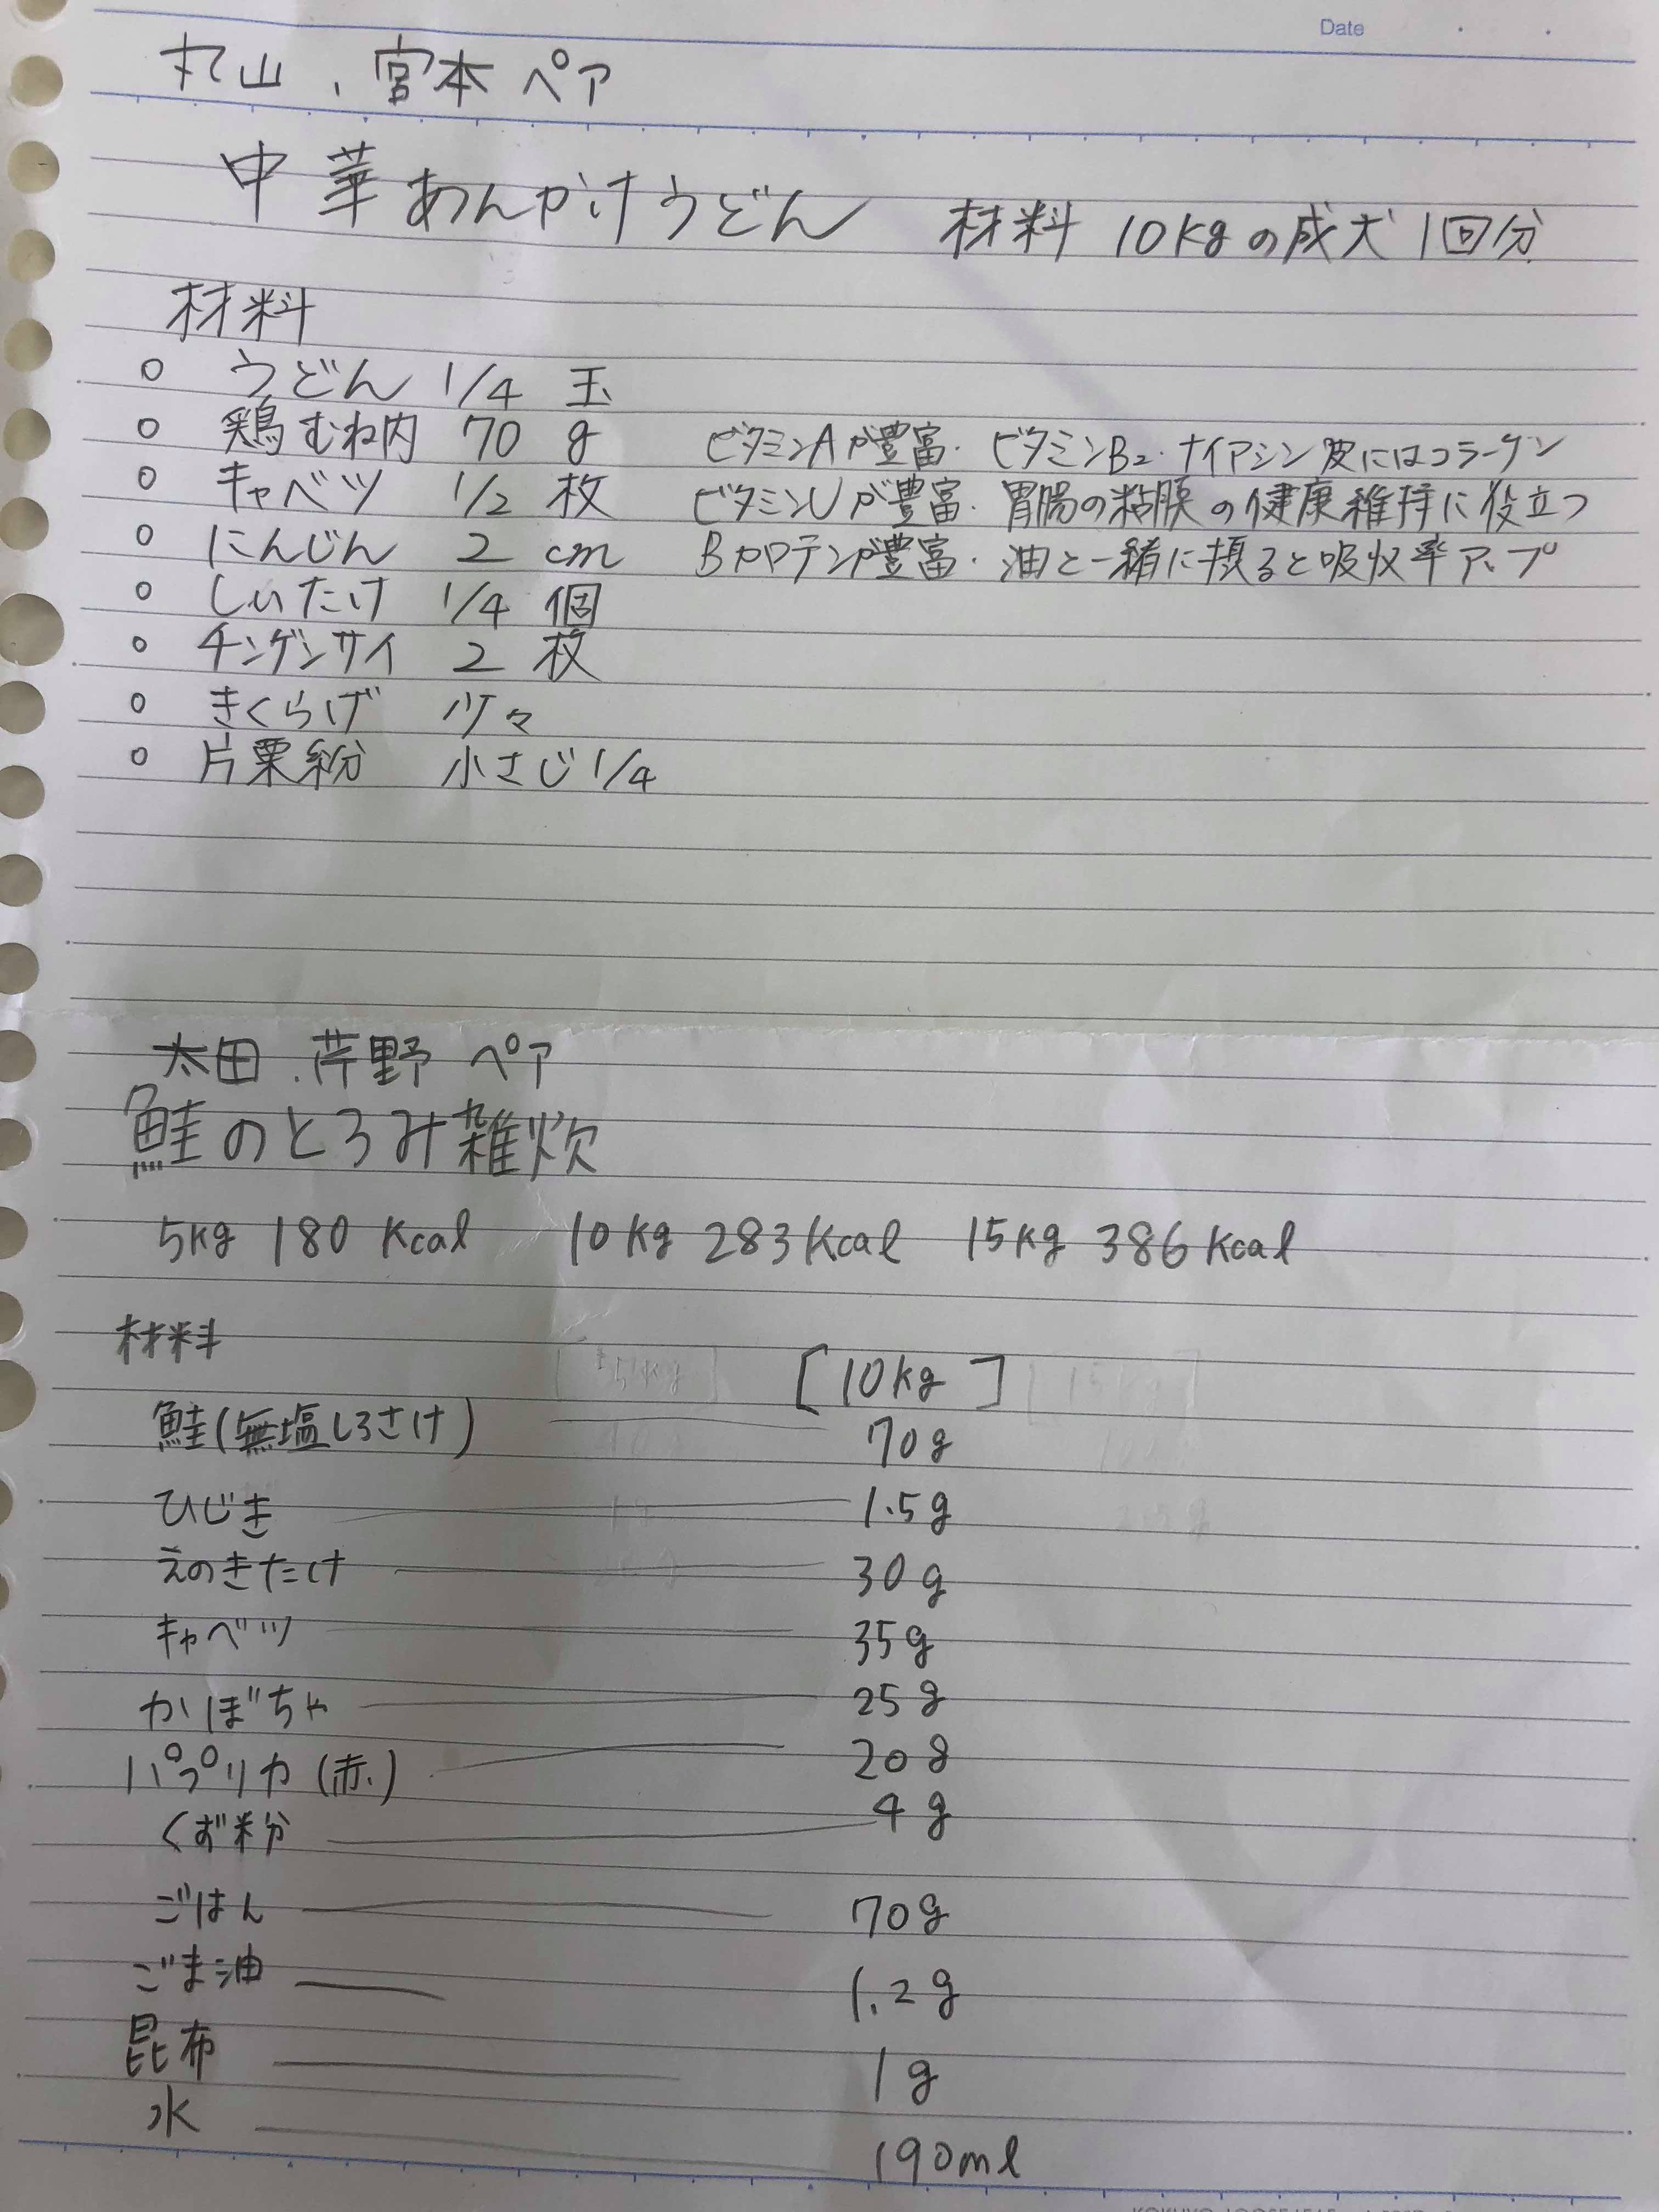 Date
丸山、宮本ペア
中華あんかけうどん 材料 10kgの成犬1回分
材料
○ うどん 1/4 玉
○ 鶏むね肉 70 g ビタミンAが豊富. ビタミンB2.ナイアシン皮にはコラーゲン
○ キャベツ 1/2 枚 ビタミンUが豊富. 胃腸の粘膜の健康維持に役立つ
○ にんじん 2 cm Bカロテンが豊富. 油と一緒に摂ると吸収率アップ
○ しいたけ 1/4 個
○ チンゲンサイ 2 枚
○ きくらげ 少々
○ 片栗粉 小さじ1/4
太田.芹野ペア
鮭のとろみ雑炊
5kg 180 Kcal 10kg 283Kcal 15kg 386Kcal
材料
[10kg]
鮭(無塩しろさけ) 70g
ひじき 1.5g
えのきたけ 30g
キャベツ 35g
かぼちゃ 25g
パプリカ(赤) 20g
くず粉 4g
ごはん 70g
ごま油 1.2g
昆布 1g
水 190ml